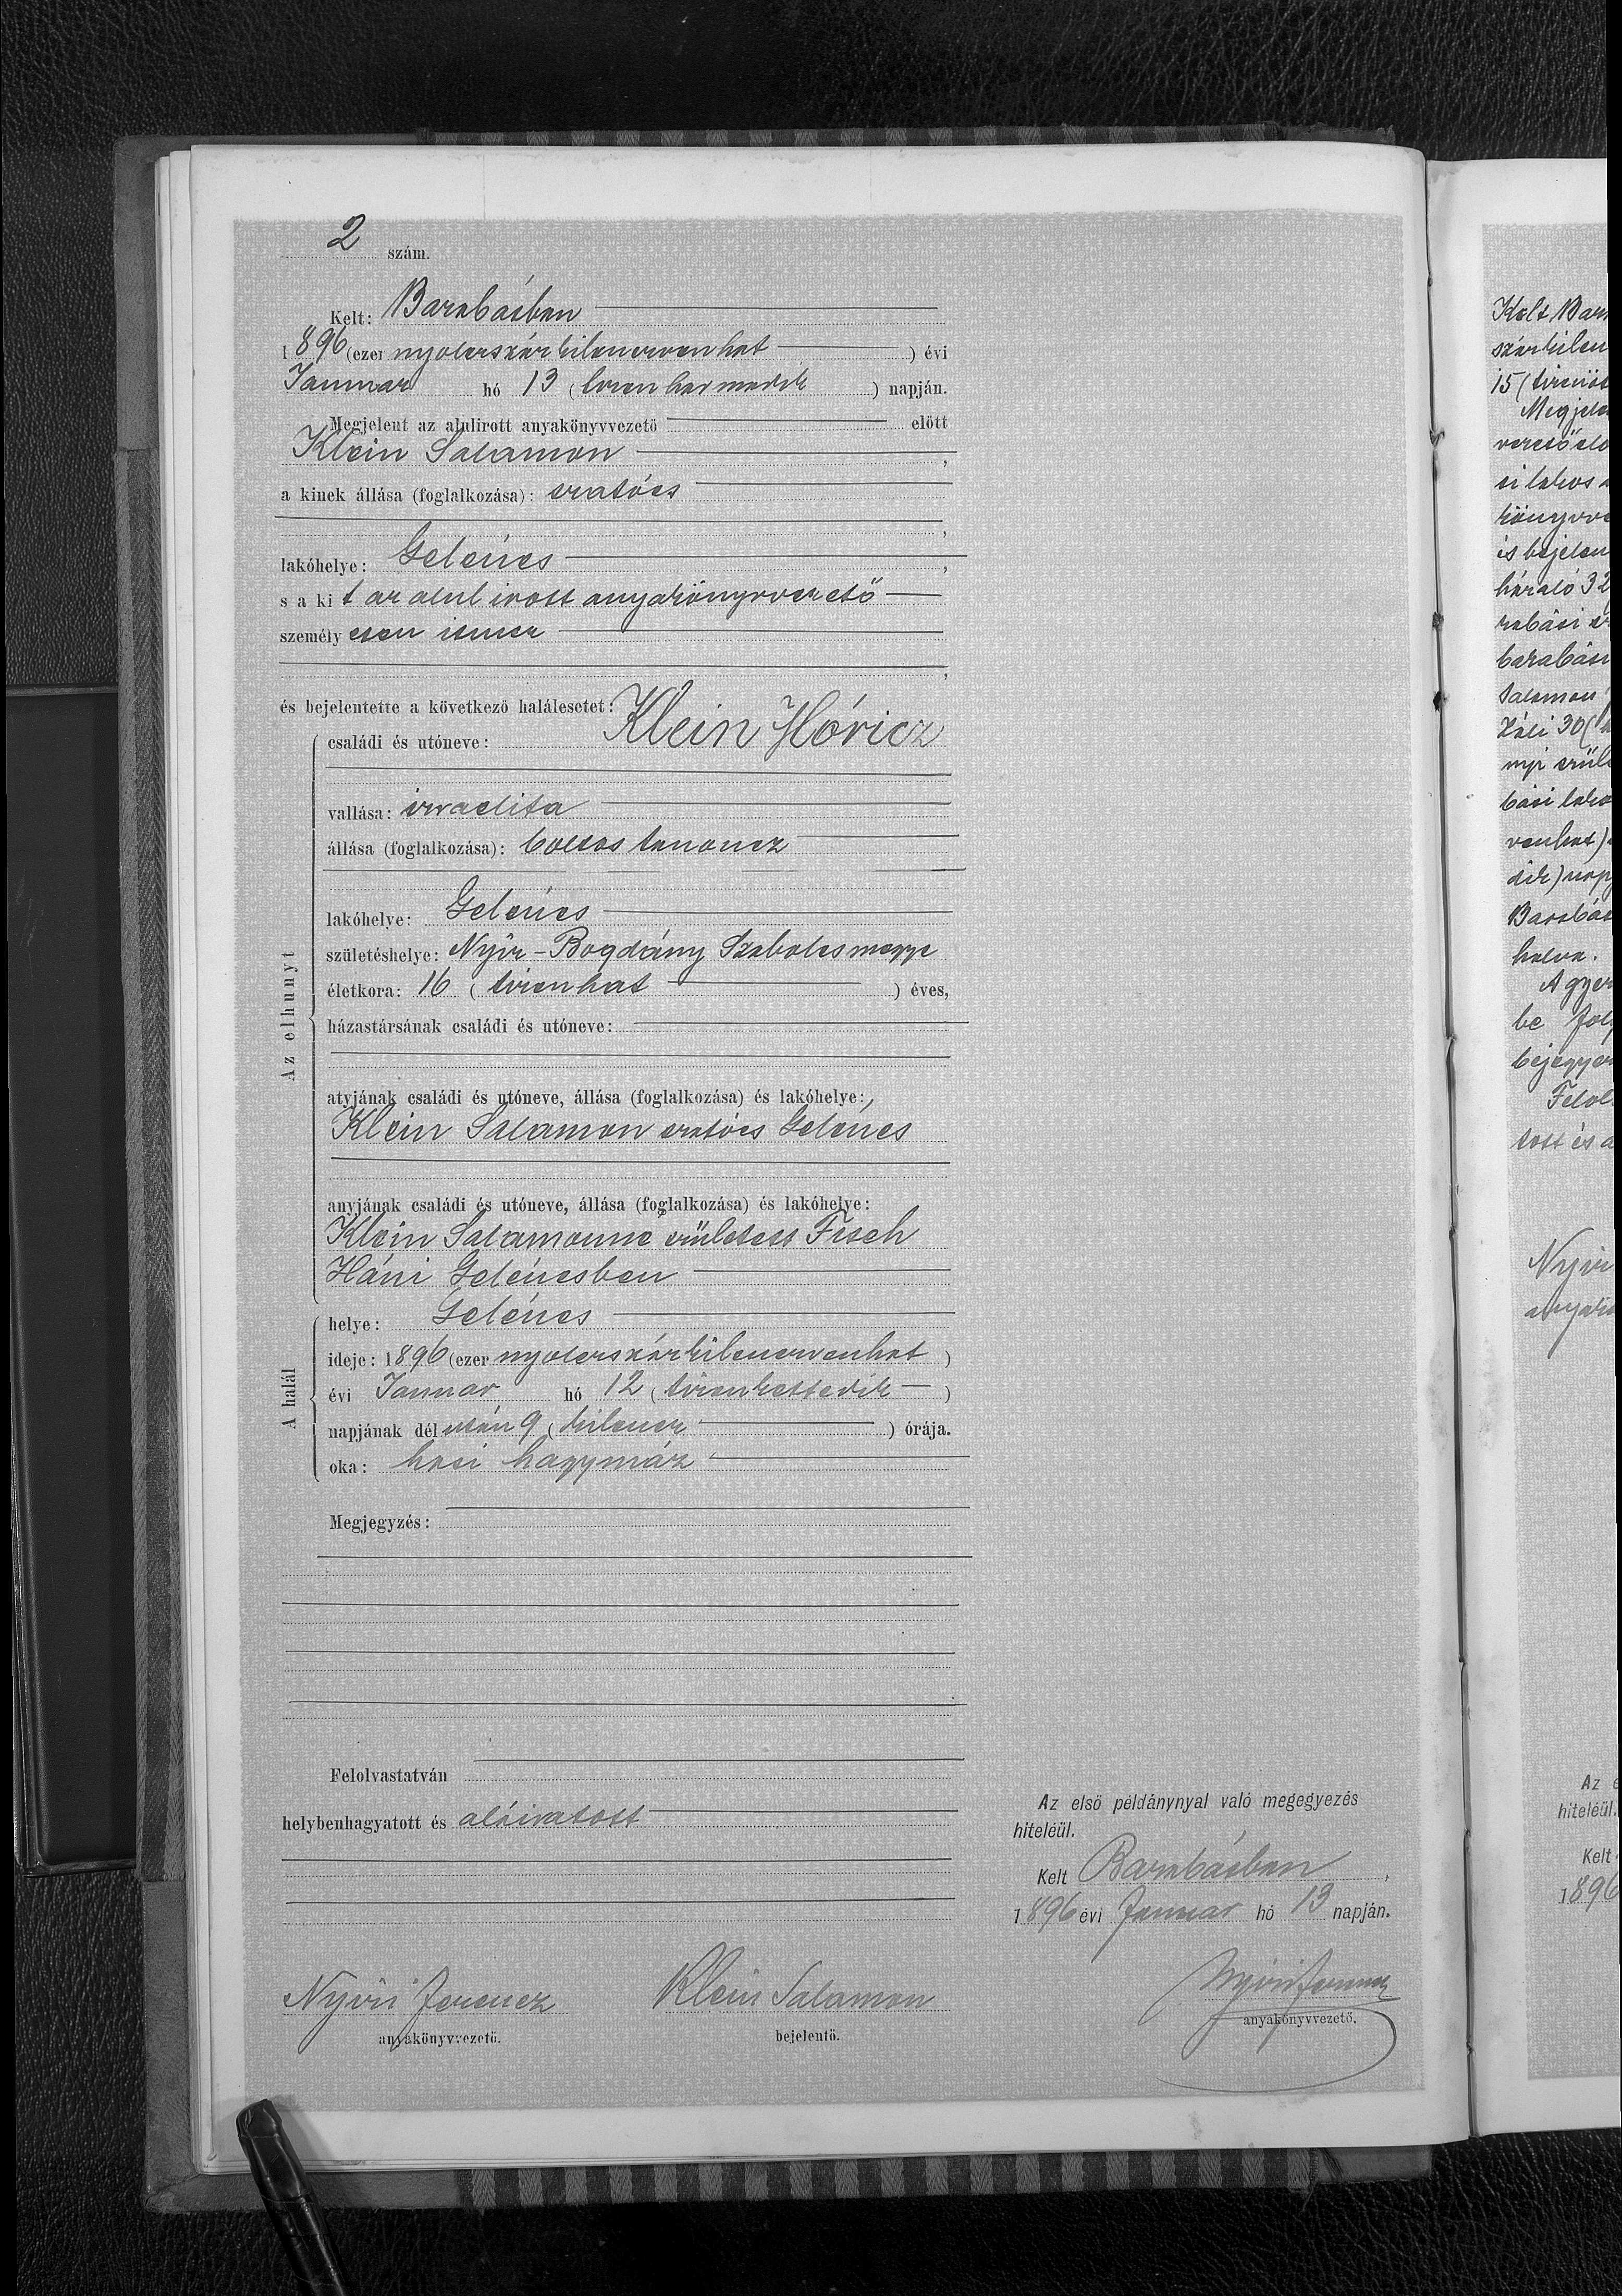 2 szám.
Kelt: Barabásban
1896 (ezer nyolczszázkilenczvenhat) évi
Januar hó 13 (tizenharmadik) napján.
Megjelent az alulirott anyakönyvvezető előtt
Klein Salamon,
a kinek állása (foglalkozása): szatócs
,
lakóhelye: Gelénes,
s a kit az alulirott anyakönyvvezető
személyesen ismer
,
és bejelentette a következő halálesetet:
családi és utóneve: Klein Móricz
vallása: izraelita
állása (foglalkozása): boltos tanoncz
lakóhelye: Gelénes
születéshelye: Nyír-Bogdány Szabolcsmegye
életkora: 16 (tizenhat) éves,
házastársának családi és utóneve:
Az elhunyt
atyjának családi és utóneve, állása (foglalkozása) és lakóhelye:
Klein Salamon szatócs Gelénes
anyjának családi és utóneve, állása (foglalkozása) és lakóhelye:
Klein Salamonné született Fisch
Háni Gelénesben
A halál
helye: Gelénes
ideje: 1896 (ezer nyolczszázkilenczvenhat)
évi Januar hó 12 (tizenkettedik)
napjának délután 9 (kilencz) órája.
oka: hasi hagymáz
Megjegyzés:
Felolvastatván
helybenhagyatott és aláiratott
Nyiri Ferencz
anyakönyvvezető.
Klein Salamon
bejelentő.
Az első példánynyal való megegyezés
hiteléül.
Kelt Barabásban,
1896 évi Januar hó 13 napján.
Nyiri Ferencz
anyakönyvvezető.
Kelt Bar
százkilen
15 (tizenöt
Megjele
vezető elő
si lakos
könyvve
és bejelen
háraló 32
rabási
barabás
Salamon
Záli 30 (
nyi szüle
bási lako
venhat)
dik) nap
Barabás
halva.
A gyer
be foly
bejegyez
Felol
tott és a
Nyiri
anyakö
Az e
hiteléül.
Kelt
1896